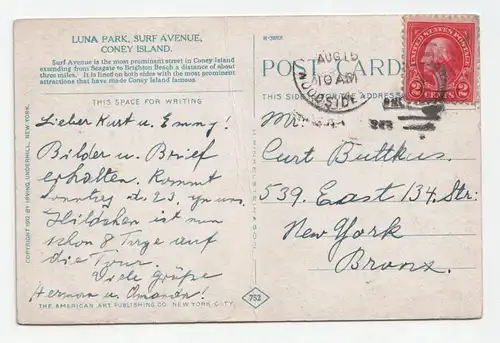 LUNA PARK, SURF AVENUE,
CONEY ISLAND.
Surf Avenue is the most prominent street in Coney Island
extending from Seagate to Brighton Beach a distance of about
three miles. It is lined on both sides with the most prominent
attractions that have made Coney Island famous.
THIS SPACE FOR WRITING
Lieber Kurt u. Emmy!
Bilder u. Brief
erhalten. Kommt
Sonntag d. 23. zu uns.
Hildchen ist nun
schon 8 Tage auf
die Tour.
Viele Grüße
Herman u.
THE AMERICAN ART PUBLISHING CO. NEW YORK CITY.
COPYRIGHT BY IRVING UNDERHILL, NEW YORK.
752
POST CARD
AUG 15
10 AM
WOODSIDE
UNITED STATES POSTAGE
2 CENTS 2
Curt Buttkus
539. East 134. Str:
New York
Bronx.